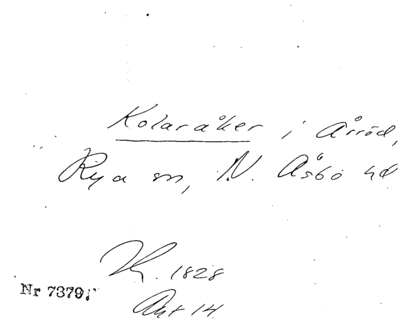 Kolaråker i Årröd,
Rya sn, N. Åsbo hd
K. 1828
Akt 14
Nr 7379.